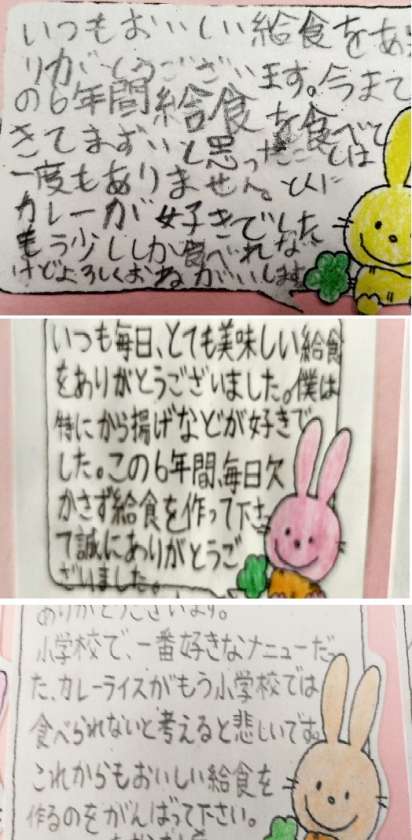 いつもおいしい給食をあ
りがとうございます。今まで
の6年間給食を食べて
きてまずいと思ったことは
一度もありません。とくに
カレーが好きでした
もう少ししか食べれな
けどよろしくおねがいします
いつも毎日、とても美味しい給食
をありがとうございました。僕は
特にから揚げなどが好きで
した。この6年間、毎日欠
かさず給食を作って下さ
て誠にありがとうご
ざいました。
ありがとうございます。
小学校で、一番好きなメニューだっ
た、カレーライスがもう小学校では
食べられないと考えると悲しいです。
これからもおいしい給食を
作るのをがんばって下さい。